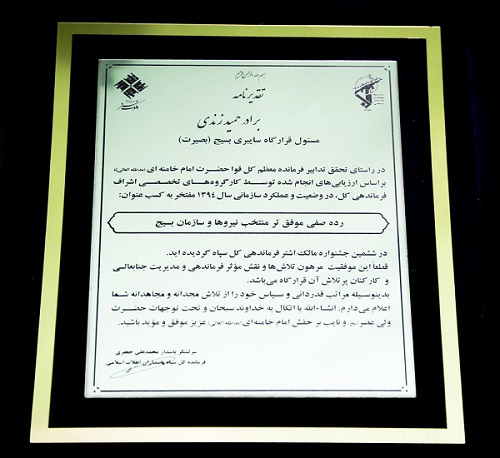 تقدیرنامه
برادر حمید زندی
مسئول قرارگاه سایبری بسیج (بصیرت)
در راستای تحقق تدابیر فرمانده معظم کل قوا حضرت امام خامنه ای (مدظله العالی)
براساس ارزیابی‌های انجام شده توسط کارگروه‌های تخصصی اشراف
فرماندهی کل، در وضعیت و عملکرد سازمانی سال ۱۳۹۴ مفتخر به کسب عنوان:
رده صفی موفق تر منتخب نیروها و سازمان بسیج
در ششمین جشنواره مالک اشتر فرماندهی کل سپاه گردیده اید.
قطعاً این موفقیت مرهون تلاش‌ها و نقش مؤثر فرماندهی و مدیریت جنابعالی
و کارکنان پرتلاش آن قرارگاه می‌باشد.
بدینوسیله مراتب قدردانی و سپاس خود را از تلاش مجدانه و مجاهدانه شما
اعلام می‌دارم. انشاءالله با اتکال به خداوند سبحان و تحت توجهات حضرت
ولی عصر و نایب بر حقش امام خامنه‌ای (مدظله العالی) عزیز موفق و مؤید باشید.
سرلشکر پاسدار محمدعلی جعفری
فرمانده کل سپاه پاسداران انقلاب اسلامی